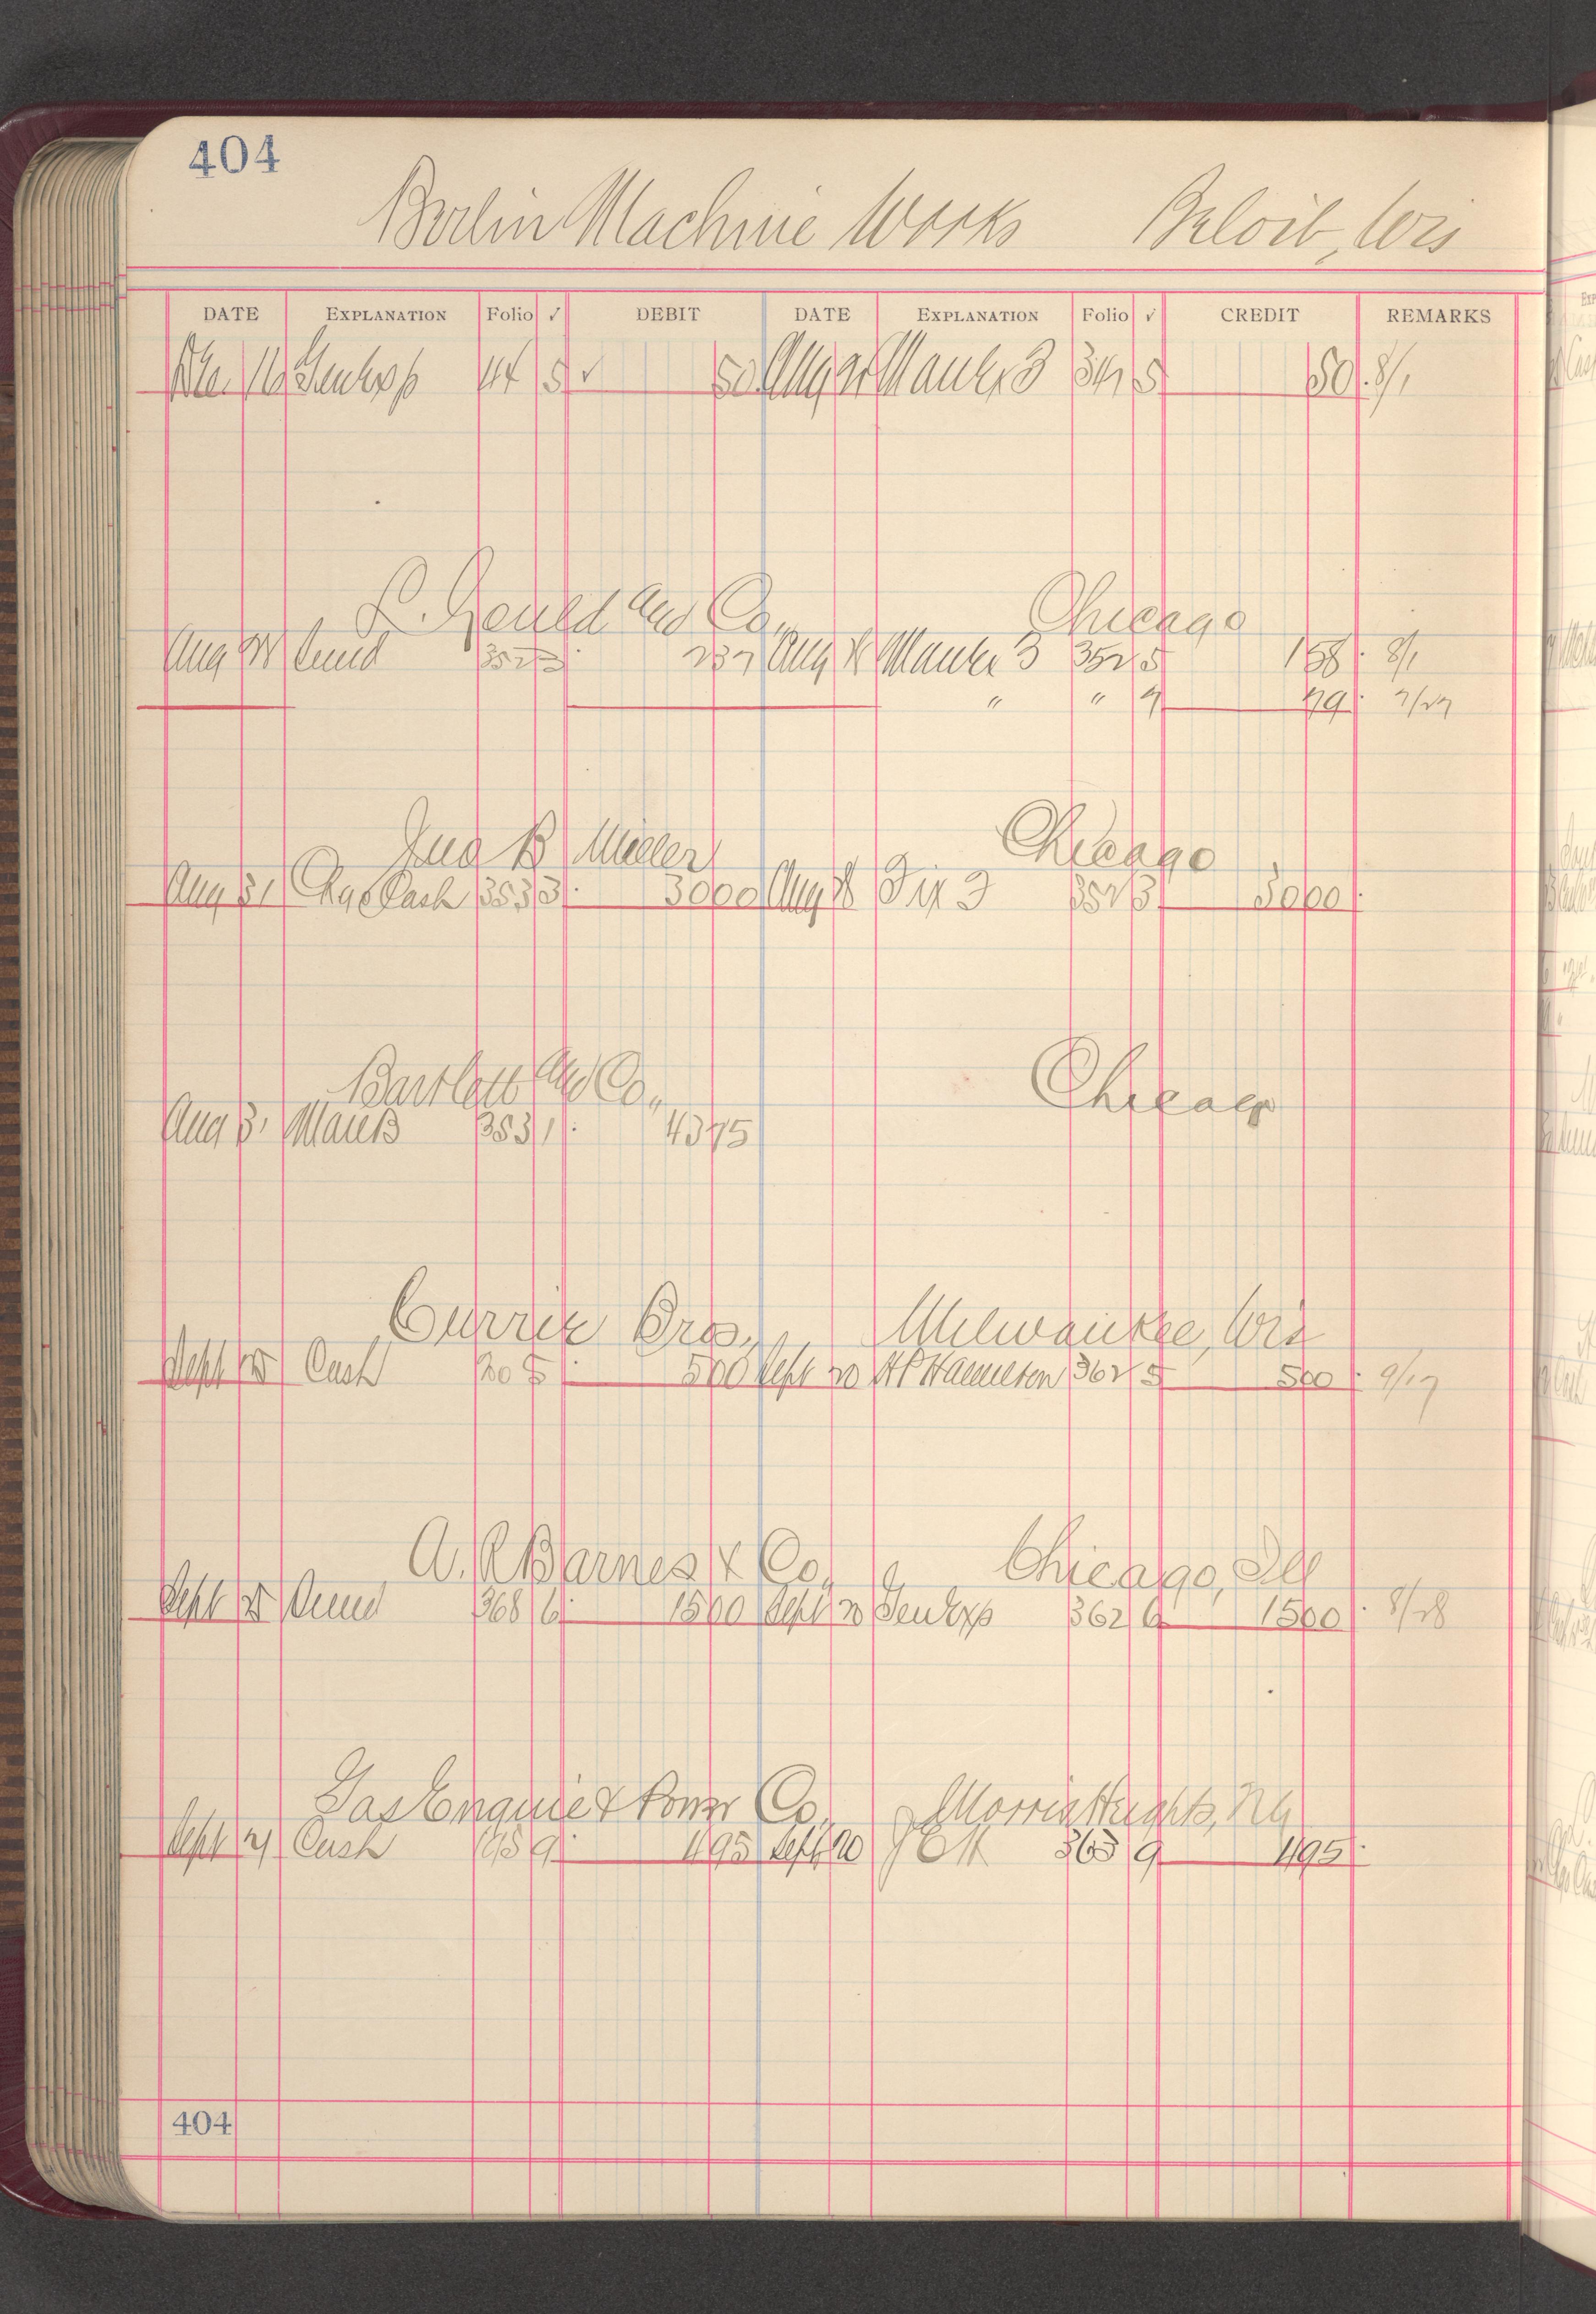 404
Berlin Machine Works Beloit, Wis
DATE EXPLANATION Folio √ DEBIT DATE EXPLANATION Folio √ CREDIT REMARKS
Dec. 16 Genl Exp 44 5 ✓ 50 Aug Manler 3 347 5 50 8/1
L. Gould and Co. Chicago
Aug 352 3 237 Aug Manler 3 352 5 158 8/1
" " 7 79 7/27
Jno B Miller Chicago
Aug 31 Chg Cash 353 3 3000 Aug Fix 3 352 3 3000
Bartlett and Co., Chicago
Aug 31 353 1 4375
Currie Bros., Milwaukee, Wis
Sept 25 Cash 20 5 500 Sept 20 H P Hamilton 362 5 500 9/17
A. R Barnes & Co. Chicago, Ill
Sept 25 368 6 1500 Sept 20 Gen Exp 362 6 1500 8/28
Gas Engine & Power Co. Morris Heights, NY
Sept 21 Cash 195 9 495 Sept 20 J O M 363 9 495
404